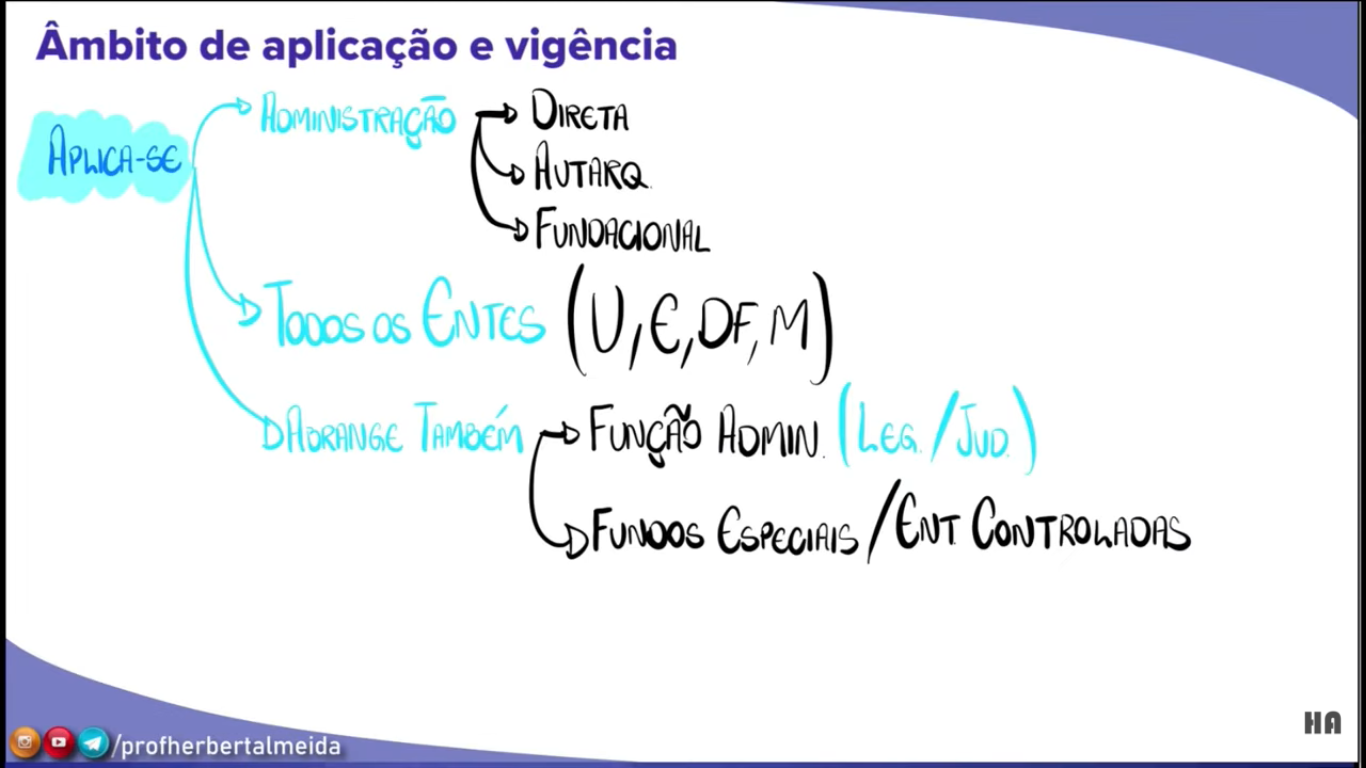 Âmbito de aplicação e vigência
APLICA-SE
ADMINISTRAÇÃO
DIRETA
AUTARQ.
FUNDACIONAL
TODOS OS ENTES (U, E, DF, M)
ABRANGE TAMBÉM
FUNÇÃO ADMIN. (LEG. / JUD.)
FUNDOS ESPECIAIS / ENT. CONTROLADAS
/profherbertalmeida
HA